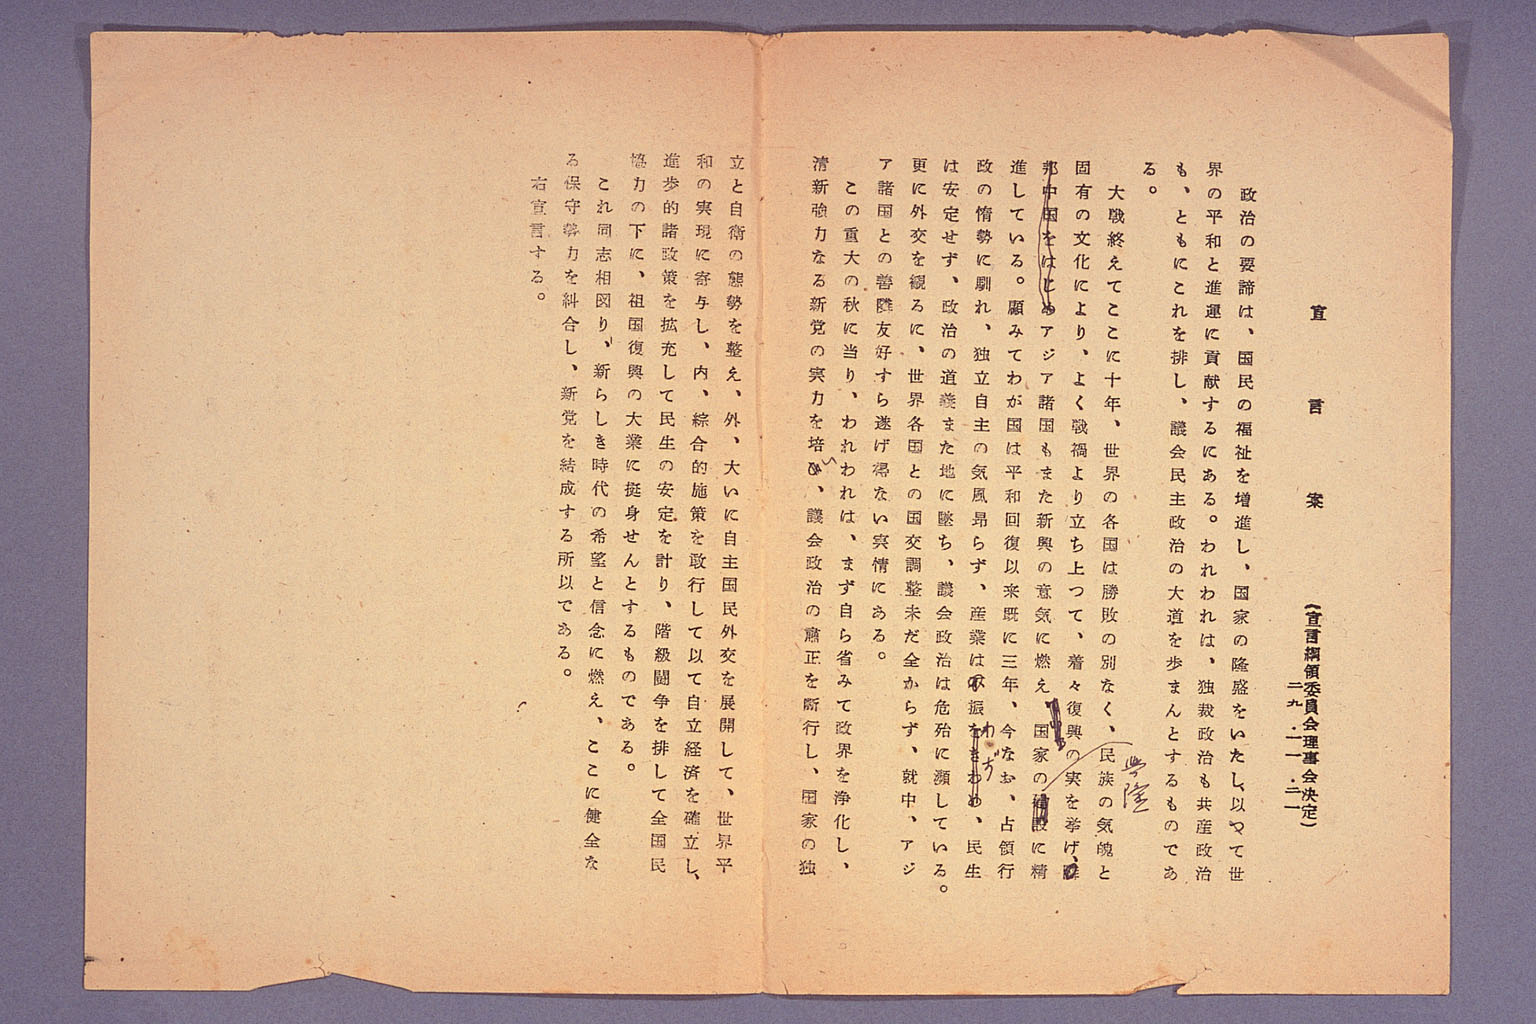 宣言案
(宣言綱領委員会理事会決定)
二九・一一・二一
政治の要諦は、国民の福祉を増進し、国家の隆盛をいたし、以つて世
界の平和と進運に貢献するにある。われわれは、独裁政治も共産政治
も、ともにこれを排し、議会民主政治の大道を歩まんとするものであ
る。
大戦終えてここに十年、世界の各国は勝敗の別なく、民族の気魄と
固有の文化により、よく戦禍より立ち上つて、着々復興の実を挙げ、隣
邦中国をはじめアジア諸国もまた新興の意気に燃え、国家の建設に精
興隆
進している。顧みてわが国は平和回復以来既に三年、今なお、占領行
政の惰勢に馴れ、独立自主の気風昂らず、産業は不振をきわめ、民生
わず
は安定せず、政治の道義また地に墜ち、議会政治は危殆に瀕している。
更に外交を観るに、世界各国との国交調整未だ全からず、就中、アジ
ア諸国との善隣友好すら遂げ得ない実情にある。
この重大の秋に当り、われわれは、まず自ら省みて政界を浄化し、
清新強力なる新党の実力を培い、議会政治の粛正を断行し、国家の独
立と自衛の態勢を整え、外、大いに自主国民外交を展開して、世界平
和の実現に寄与し、内、綜合的施策を敢行して以て自立経済を確立し、
進歩的諸政策を拡充して民生の安定を計り、階級闘争を排して全国民
協力の下に、祖国復興の大業に挺身せんとするものである。
これ同志相図り、新らしき時代の希望と信念に燃え、ここに健全な
る保守勢力を糾合し、新党を結成する所以である。
右宣言する。